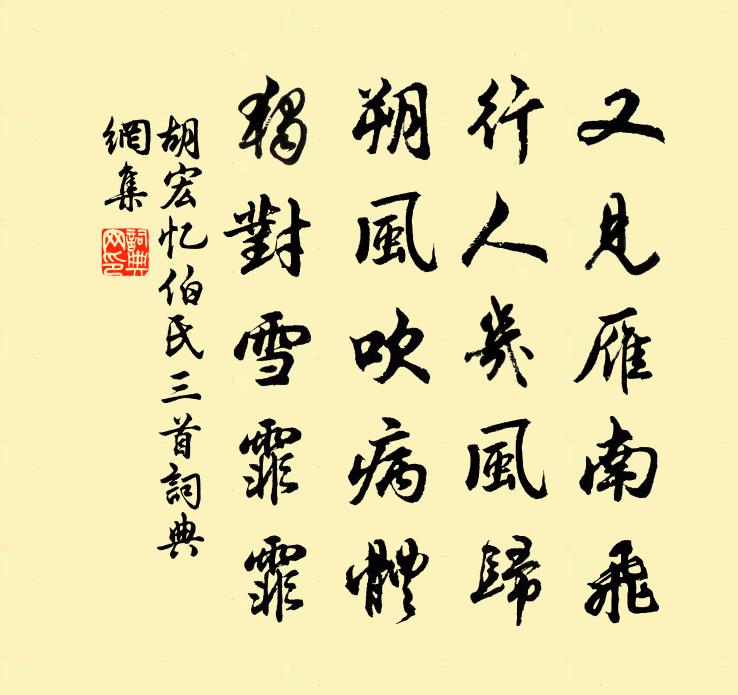 又見雁南飛
行人幾風歸
朔風吹病體
獨對雪霏霏
胡宏忆伯氏三首詞典
網集
詞典網印